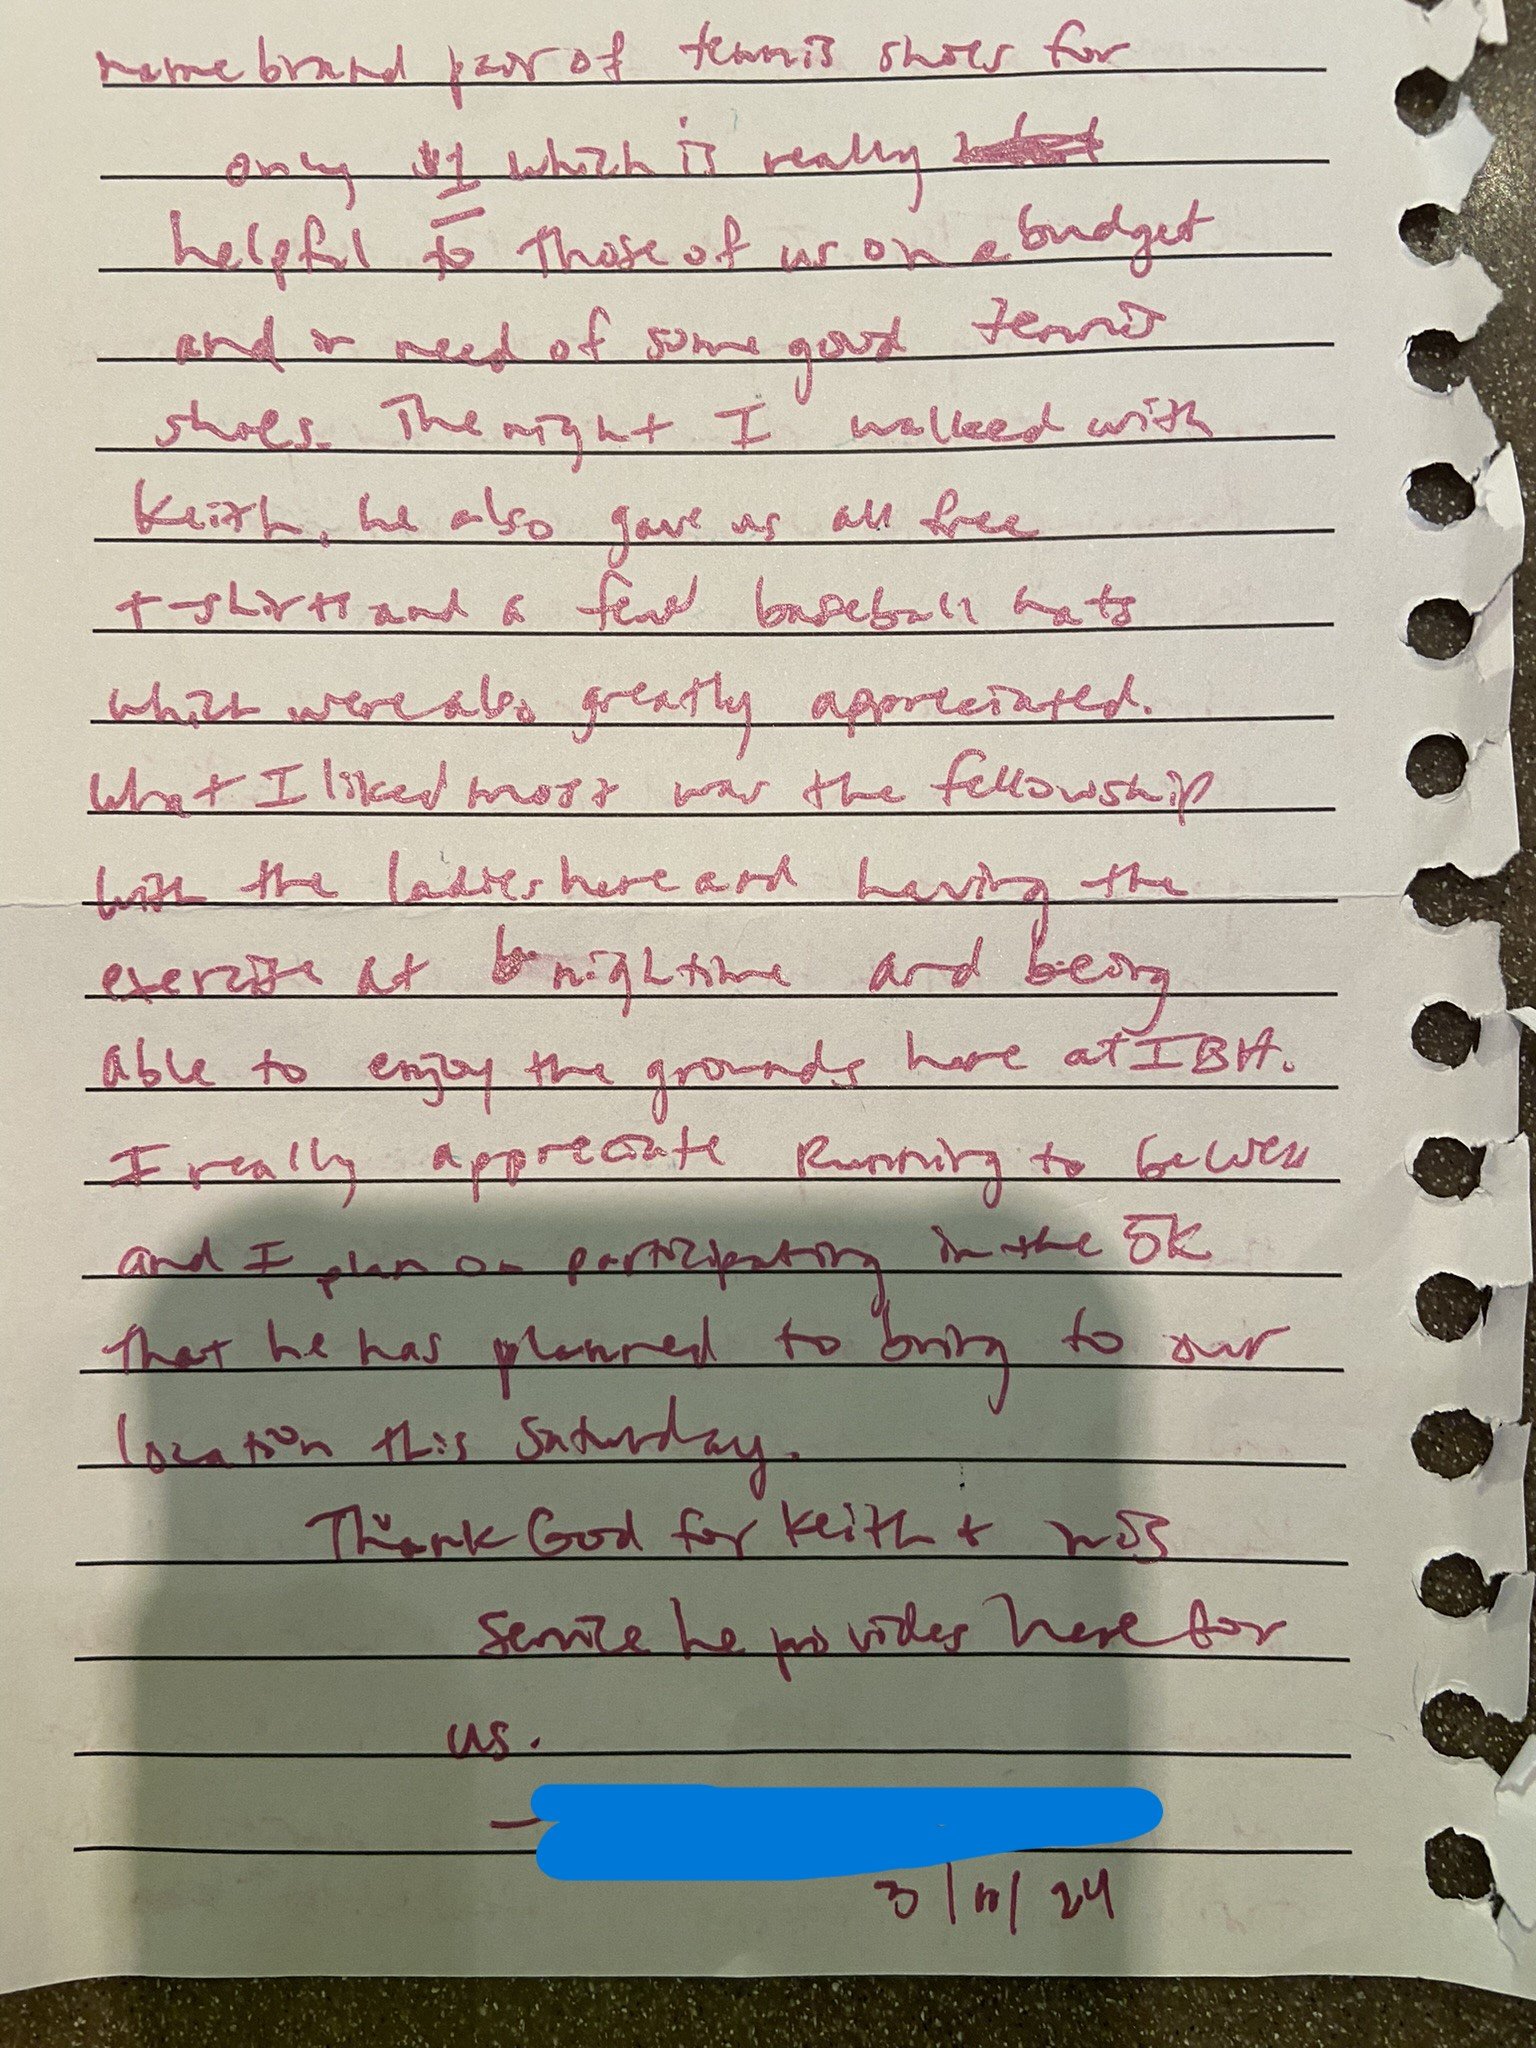 name brand pair of tennis shoes for
only $1 which is really
helpful to those of us on a budget
and in need of some good tennis
shoes. The night I walked with
Keith, he also gave us all free
t-shirts and a few baseball hats
which were also greatly appreciated.
What I liked most was the fellowship
with the ladies here and having the
exercise at nightime and being
able to enjoy the grounds here at IBH.
I really appreciate Running to be well
and I plan on participating in the 5K
that he has planned to bring to our
location this Saturday.
Thank God for Keith +
service he provides here for
us.
3/ /24